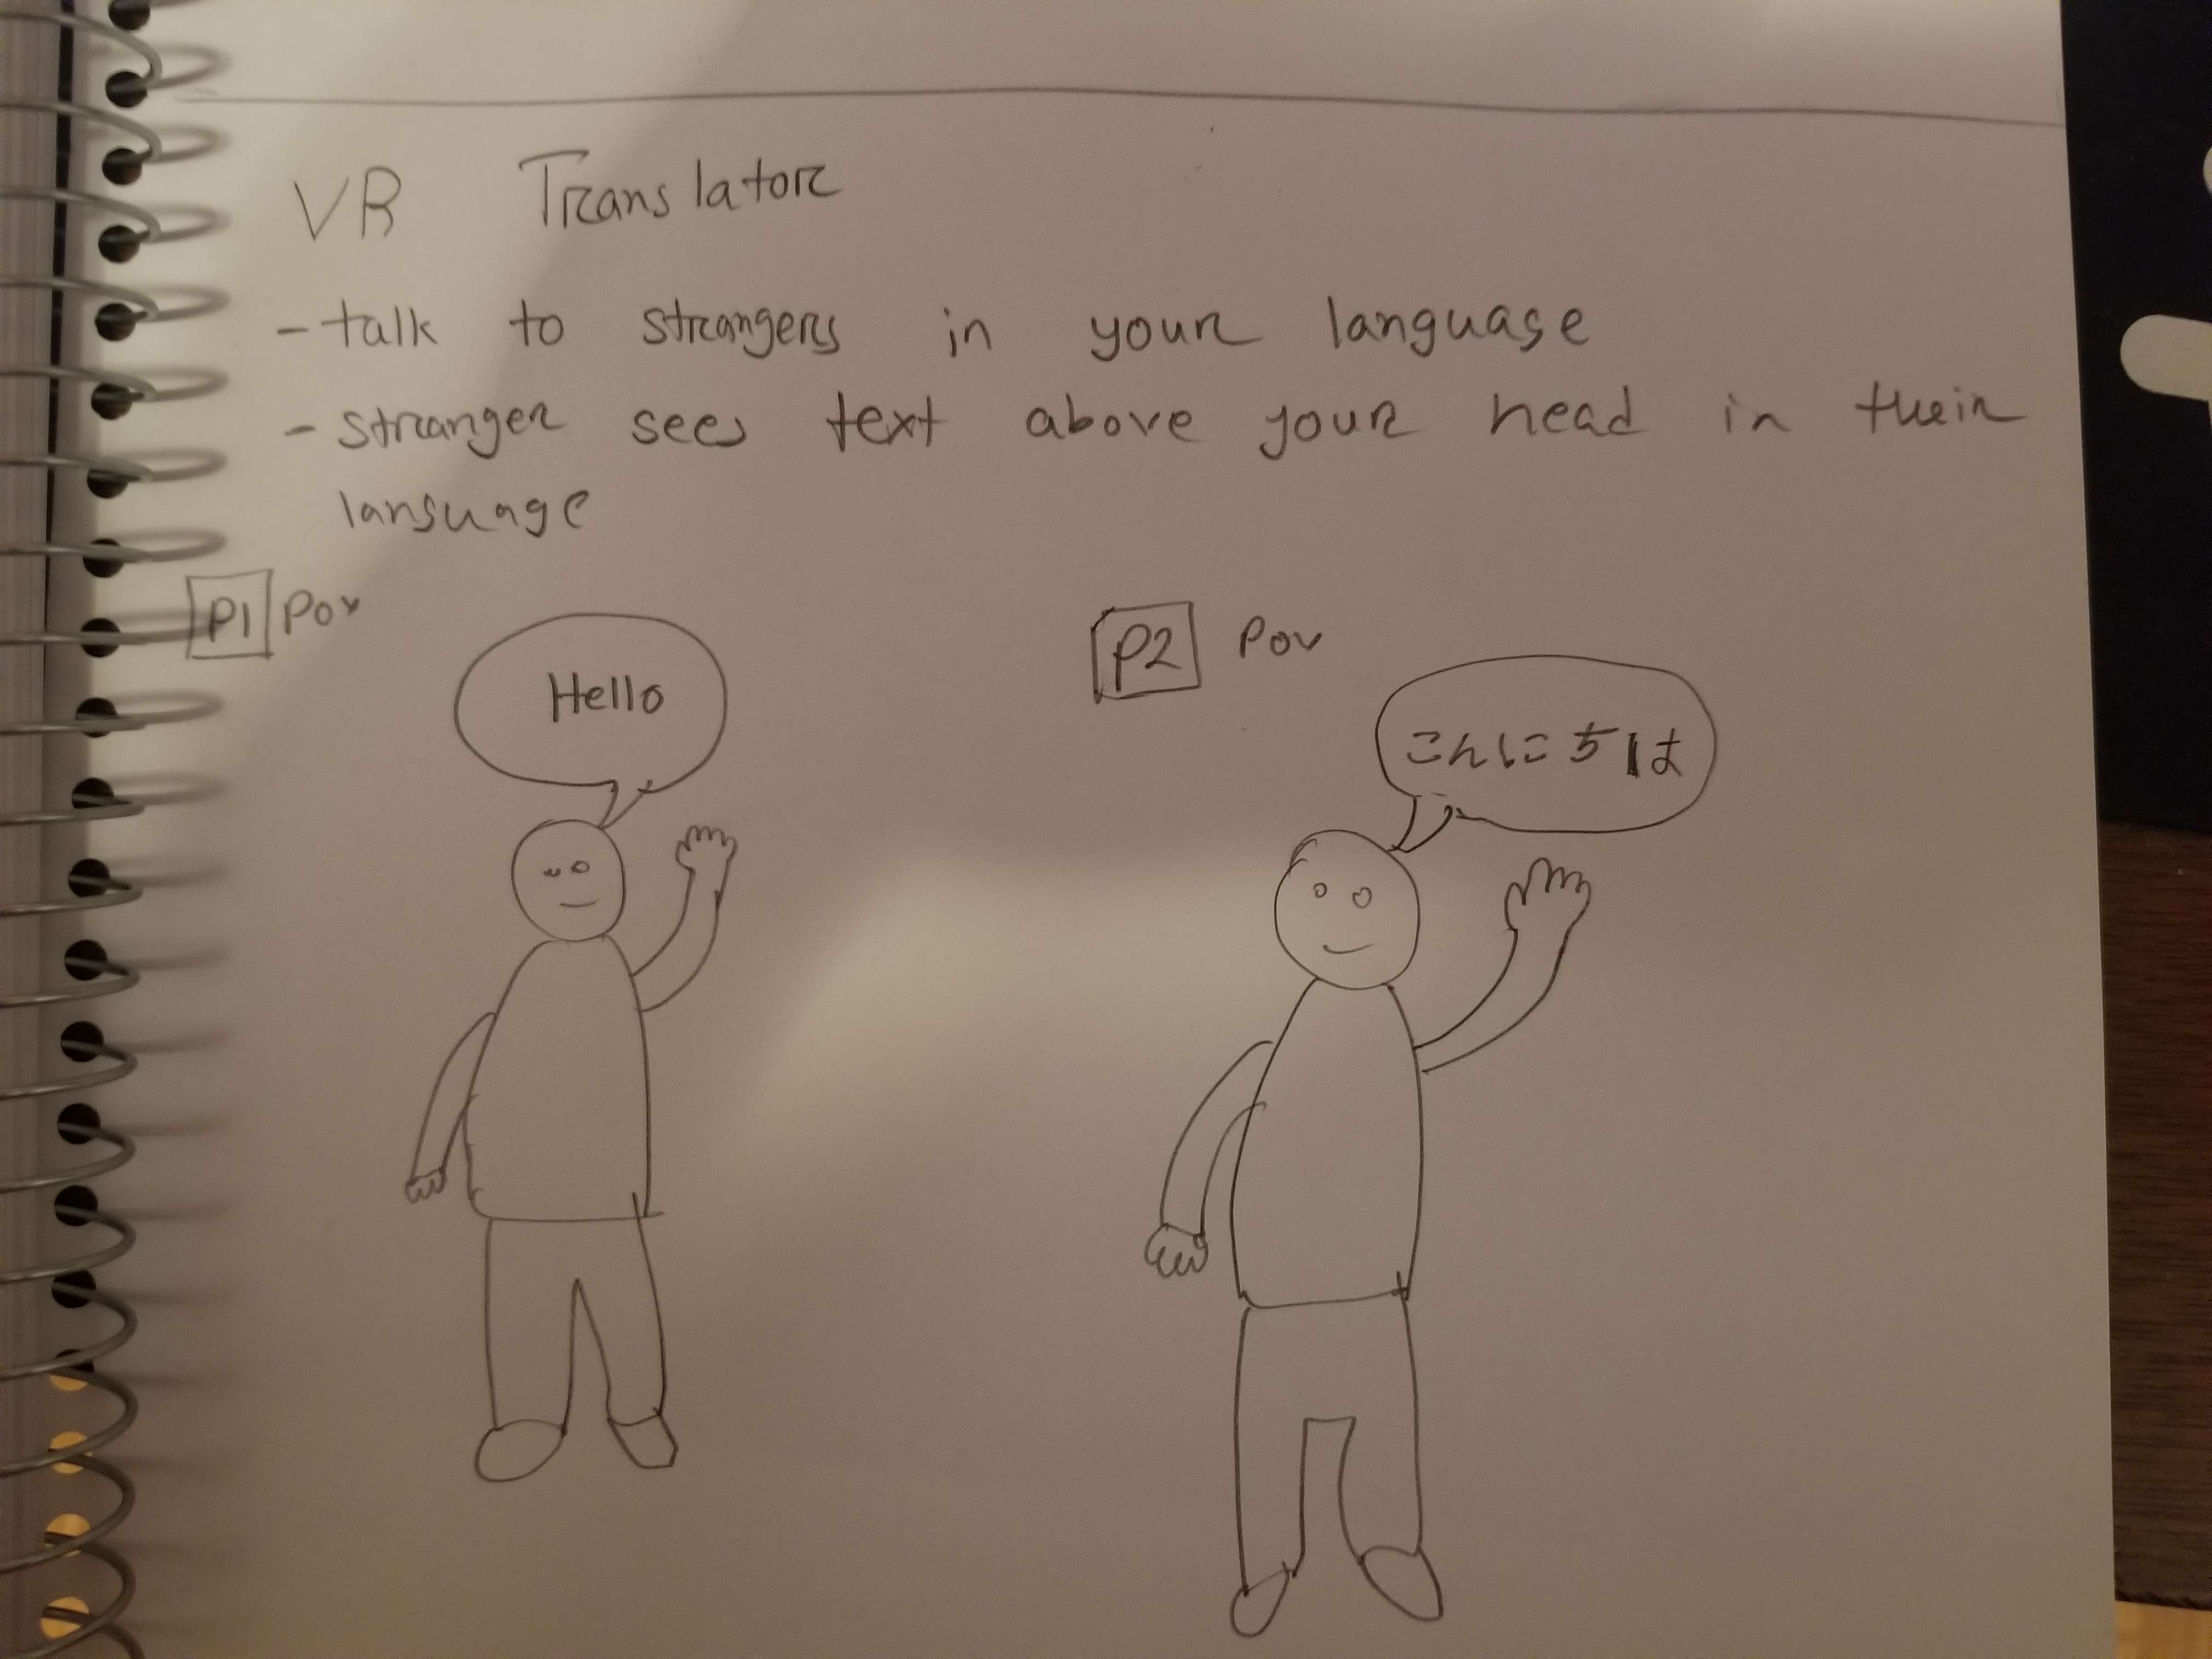 VR Translator
- talk to strangers in your language
- stranger sees text above your head in their
language
P1 Pov
P2 Pov
Hello
こんにちは